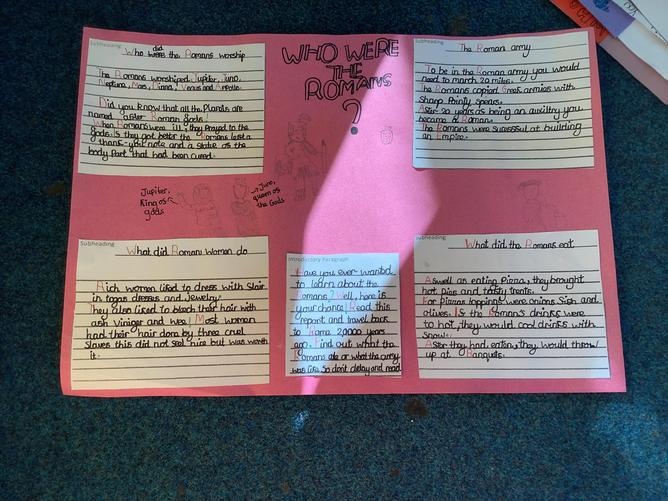 WHO WERE
THE
ROMANS
?
Subheading
did
Who were the Romans worship
The Romans worshiped Jupiter, Juno,
Neptune, Mars, Diana, Venus and Apollo.
Did you know that all the Planets are
named after Roman gods!
When Romans were ill, they prayed to the
gods. Is they got better the Romans left a
thank-you note and a statue os the
body part that had been cured.
Subheading
The Roman army
To be in the Roman army you would
need to march 20 miles.
The Romans copied Greek armies with
sharp pointy spears.
After 20 years as being an auxiltry you
became a Roman.
The Romans were sucsessful at building
an Empire.
Jupiter,
King os
gods
Juno,
queen os
the Gods
Subheading
What did Romans Woman do
Rich women lised to dress with Slair
in togas dresses and Jewelry.
They also lised to bleach their hair with
ash viniger and wea! Most women
had their hair done by three cruel
Slaves this did not seel nice but was worth
it.
Introductory Paragraph
Have you ever wanted
to learn about the
Romans? Well, here is
your chance! Read this
report and travel back
to Roma 20000 years
ago. Find out what the
Romans ate or what the army
was like. So don't delay and read
Subheading
What did the Romans eat
Aswell an eating Pizza, they brought
hot pies and tasty treats.
For pizzas toppings were onions Sish and
olives. Is the Roman's drinks were
to hot, they would cool drinks with
snow.
Aster they had eaten, they would throw
up at Banquets.